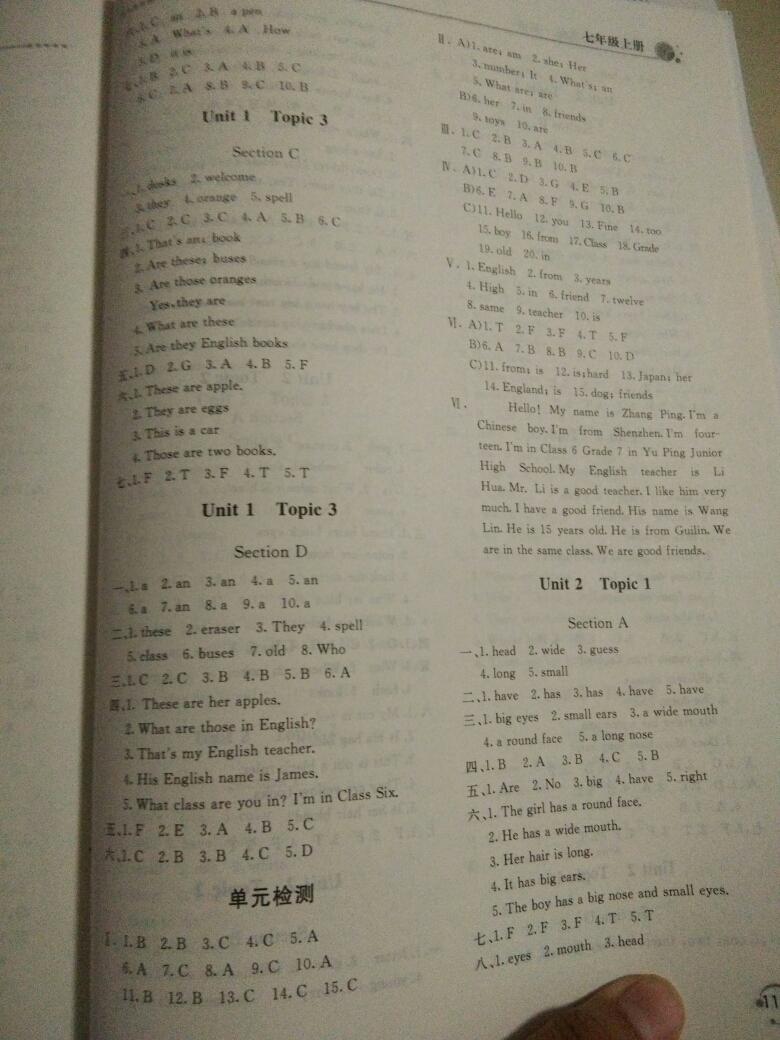 七年级上册
六、1. C an 2. B a pen
3. A What's 4. A How
5. D it is
七、1. B 2. C 3. A 4. B 5. C
6. C 7. A 8. B 9. C 10. B
Unit 1 Topic 3
Section C
一、1. desks 2. welcome
3. they 4. orange 5. spell
三、1. C 2. C 3. C 4. A 5. B 6. C
四、1. That's an; book
2. Are these; buses
3. Are those oranges
Yes, they are
4. What are these
5. Are they English books
五、1. D 2. G 3. A 4. B 5. F
六、1. These are apple.
2. They are eggs
3. This is a car
4. Those are two books.
七、1. F 2. T 3. F 4. T 5. T
Unit 1 Topic 3
Section D
一、1. a 2. an 3. an 4. a 5. an
6. a 7. an 8. a 9. a 10. a
二、1. these 2. eraser 3. They 4. spell
5. class 6. buses 7. old 8. Who
三、1. C 2. C 3. B 4. B 5. B 6. A
四、1. These are her apples.
2. What are those in English?
3. That's my English teacher.
4. His English name is James.
5. What class are you in? I'm in Class Six.
五、1. F 2. E 3. A 4. B 5. C
六、1. C 2. B 3. B 4. C 5. D
单元检测
Ⅰ. 1. B 2. B 3. C 4. C 5. A
6. A 7. C 8. A 9. C 10. A
11. B 12. B 13. C 14. C 15. C
Ⅱ. A) 1. are; am 2. she; Her
3. number; It 4. What's; an
5. What are; are
B) 6. her 7. in 8. friends
9. toys 10. are
Ⅲ. 1. C 2. B 3. A 4. B 5. C 6. C
7. C 8. B 9. B 10. B
Ⅳ. A) 1. C 2. D 3. G 4. E 5. B
B) 6. E 7. A 8. F 9. G 10. B
C) 11. Hello 12. you 13. Fine 14. too
15. boy 16. from 17. Class 18. Grade
19. old 20. in
Ⅴ. 1. English 2. from 3. years
4. High 5. in 6. friend 7. twelve
8. same 9. teacher 10. is
Ⅵ. A) 1. T 2. F 3. F 4. T 5. F
B) 6. A 7. B 8. B 9. C 10. D
C) 11. from; is 12. is; hard 13. Japan; her
14. England; is 15. dog; friends
Ⅵ. Hello! My name is Zhang Ping. I'm a
Chinese boy. I'm from Shenzhen. I'm four-
teen. I'm in Class 6 Grade 7 in Yu Ping Junior
High School. My English teacher is Li
Hua. Mr. Li is a good teacher. I like him very
much. I have a good friend. His name is Wang
Lin. He is 15 years old. He is from Guilin. We
are in the same class. We are good friends.
Unit 2 Topic 1
Section A
一、1. head 2. wide 3. guess
4. long 5. small
二、1. have 2. has 3. has 4. have 5. have
三、1. big eyes 2. small ears 3. a wide mouth
4. a round face 5. a long nose
四、1. B 2. A 3. B 4. C 5. B
五、1. Are 2. No 3. big 4. have 5. right
六、1. The girl has a round face.
2. He has a wide mouth.
3. Her hair is long.
4. It has big ears.
5. The boy has a big nose and small eyes.
七、1. F 2. F 3. F 4. T 5. T
八、1. eyes 2. mouth 3. head